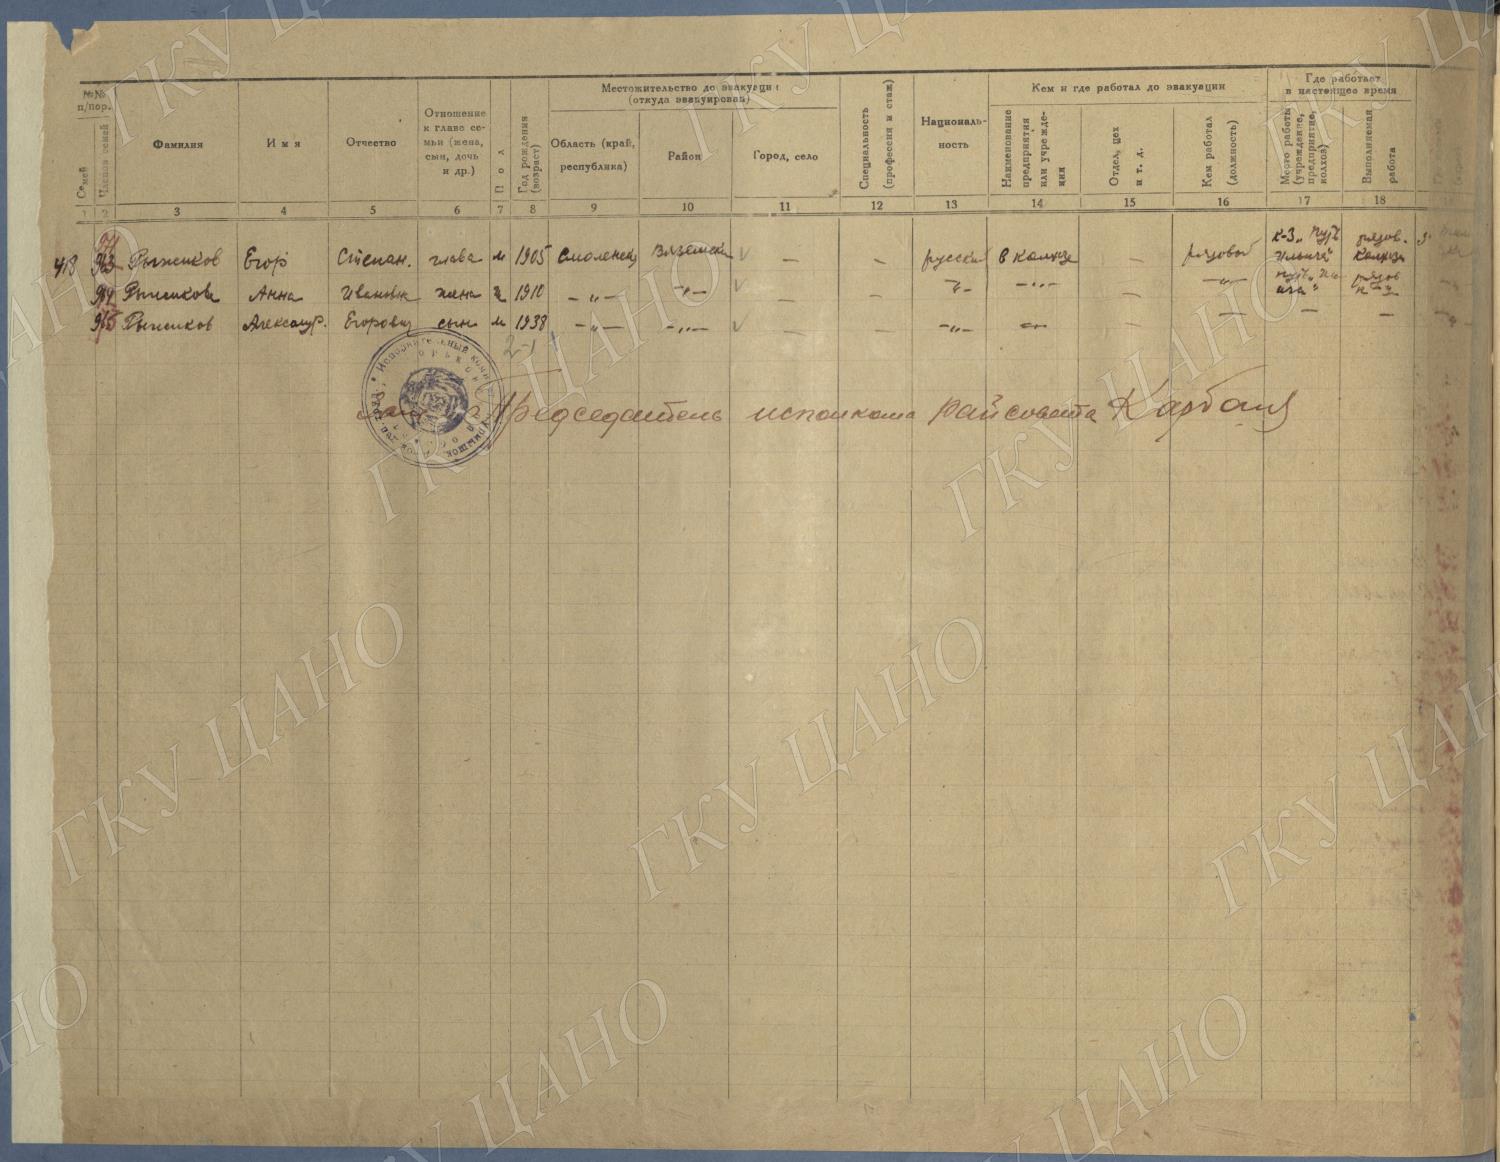 №№ п/пор.
Семей
Членов семей
Фамилия
Имя
Отчество
Отношение к главе се-
мьи (жена, сын, дочь и др.)
Пол
Год рождения (возраст)
Местожительство до эвакуации
(откуда эвакуирован)
Область (край, республика)
Район
Город, село
Специальность (профессия и стаж)
Националь-
ность
Кем и где работал до эвакуации
Наименование предприятия или учрежде-
ния
Отдел, цех и т. д.
Кем работал (должность)
Где работает
в настоящее время
Место работы (учреждение, предприятие, колхоз)
Выполняемая работа
1 2 3 4 5 6 7 8 9 10 11 12 13 14 15 16 17 18
418 963 Рыжиков Егор Степан. глава м 1905 Смоленск Вяземски — — русский в колхозе — рядовой к-з „Путь Ильича" рядов. колхоз
964 Рыжикова Анна Ивановна жена ж 1910 —„— —„— — — —„— —„— — —„— Путь Ильича" рядов к-з
965 Рыжиков Александр. Егорович сын м 1938 —„— —„— — — —„— — — — — —
2-1
Председатель исполкома райсовета
Исполнительный
ГКУ ЦАНО